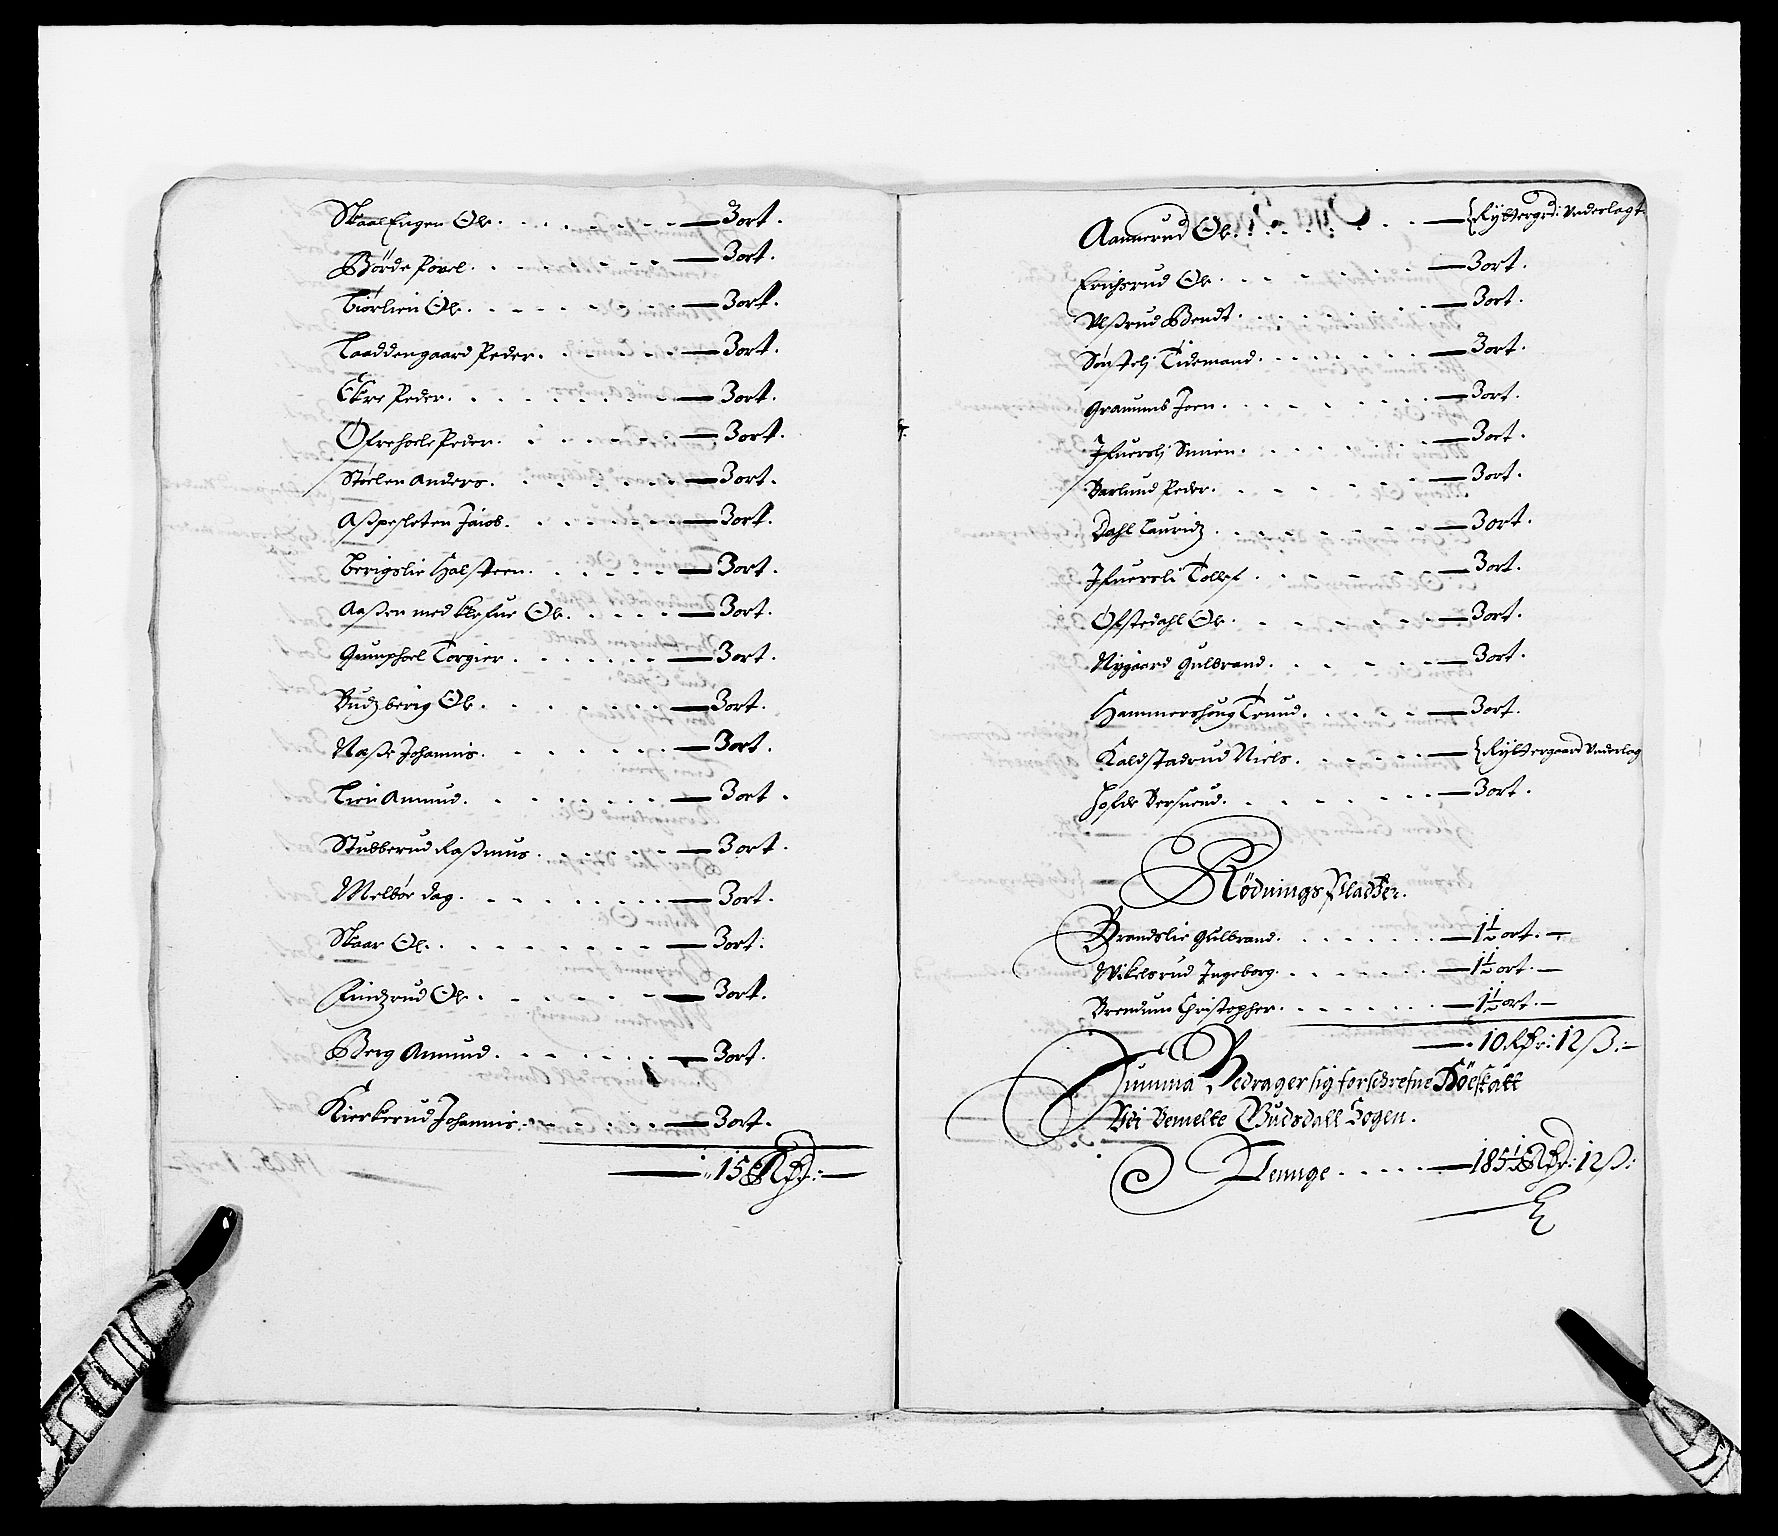 Skaal Engen Ole . . . . . . — 3 ort.
Börde Povel . . . . . . — 3 ort.
Liörlien Ole . . . . . . — 3 ort.
Laaddengaard Peder . . . . — 3 ort.
Ekre Peder . . . . . . — 3 ort.
Öfrehoele Peder . . . . . — 3 ort.
Stöelen Anders . . . . . — 3 ort.
Aßpesleten Jacob . . . . . — 3 ort.
Berigslie Halsteen . . . . . — 3 ort.
Aaßen med Klefue Ole . . . . — 3 ort.
Gumphoel Torgier . . . . . — 3 ort.
Budzberig Ole . . . . . . — 3 ort.
Næße Johannis . . . . . — 3 ort.
Lien Amund . . . . . . — 3 ort.
Stubberud Raßmus . . . . . — 3 ort.
Melbör dag . . . . . . — 3 ort.
Skaar Ole . . . . . . — 3 ort.
Findzrud Ole . . . . . — 3 ort.
Berg Amund . . . . . — 3 ort.
Kierkerud Johannis . . . . — 3 ort.
— 15 Rdr: —
Aannerud Ole . . . . — { Ryttergrd: Underlagt
Erichsrud Ole . . . . . — 3 ort.
Ulßrud Bendt . . . . . — 3 ort.
Sönstelj Tidemand . . . . . — 3 ort.
Graumns Joen . . . . . — 3 ort.
Ifuerslj Simen . . . . . — 3 ort.
Barlund Peder . . . . . — 3 ort.
Dahl Lauridz . . . . . — 3 ort.
Ifuersli Tollef . . . . . — 3 ort.
Ofstedahl Ole . . . . . — 3 ort.
Nygaard Gulbrand . . . . . — 3 ort.
Hammershoug Trund . . . . — 3 ort.
Kaldstadrud Niels . . . . — { Ryttergaard Underlag
Hofde Bersuend . . . . . — 3 ort.
Rödnings Pladtzer.
Brandslie Gulbrand . . . . . — 1½ ort. —
Mikelsrud Ingeborg . . . . . — 1½ ort. —
Brendum Christopher . . . . . — 1½ ort. —
— 10 Rdr: 12 ß: —
Summa Bedrager sig forschrefne Köeskatt
Udi Bemelte Gudsdall Sogen.
Penuge . . . . — 185½ Rdr: 12 ß: